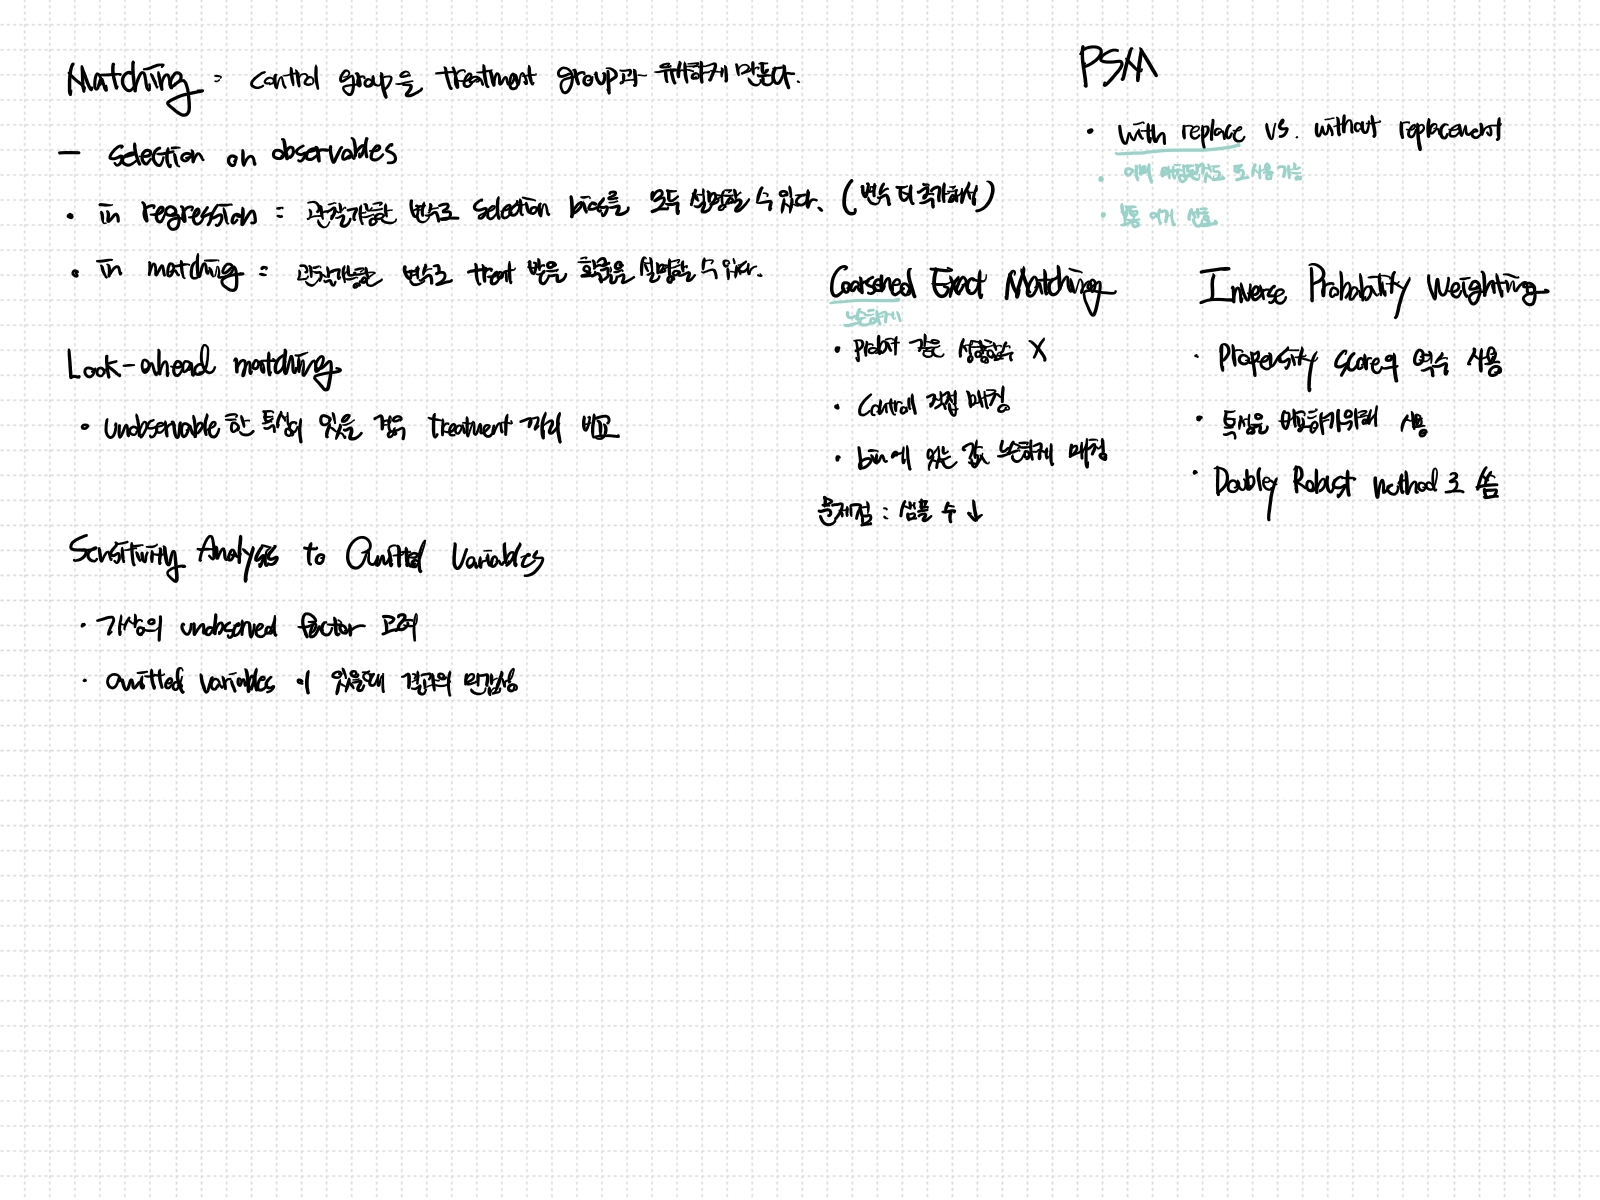 Matching : control group을 treatment group과 유사하게 만든다.
— selection on observables
• in regression = 관찰가능한 변수로 selection bias를 모두 설명할 수 있다. (변수 더 추가해서)
• in matching = 관찰가능한 변수로 treat 받은 확률을 설명할 수 있다.
Look-ahead matching
• unobservable한 특성이 있을 경우 treatment 끼리 비교
Sensitivity Analysis to Omitted Variables
• 가상의 unobserved factor 고려
• omitted variables 이 있을때 결과의 민감성
PSM
• with replace vs. without replacement
• 이미 매칭된것도 또 사용 가능
• 보통 이거 선호
Coarsened Exact Matching
느슨하게
• probit 같은 성향함수 X
• Control 직접 매칭
• bin에 있는 값 느슨하게 매칭
문제점 : 샘플 수 ↓
Inverse Probability Weighting
• Propensity score의 역수 사용
• 특성을 위해 사용
• Doubly Robust method로 씀